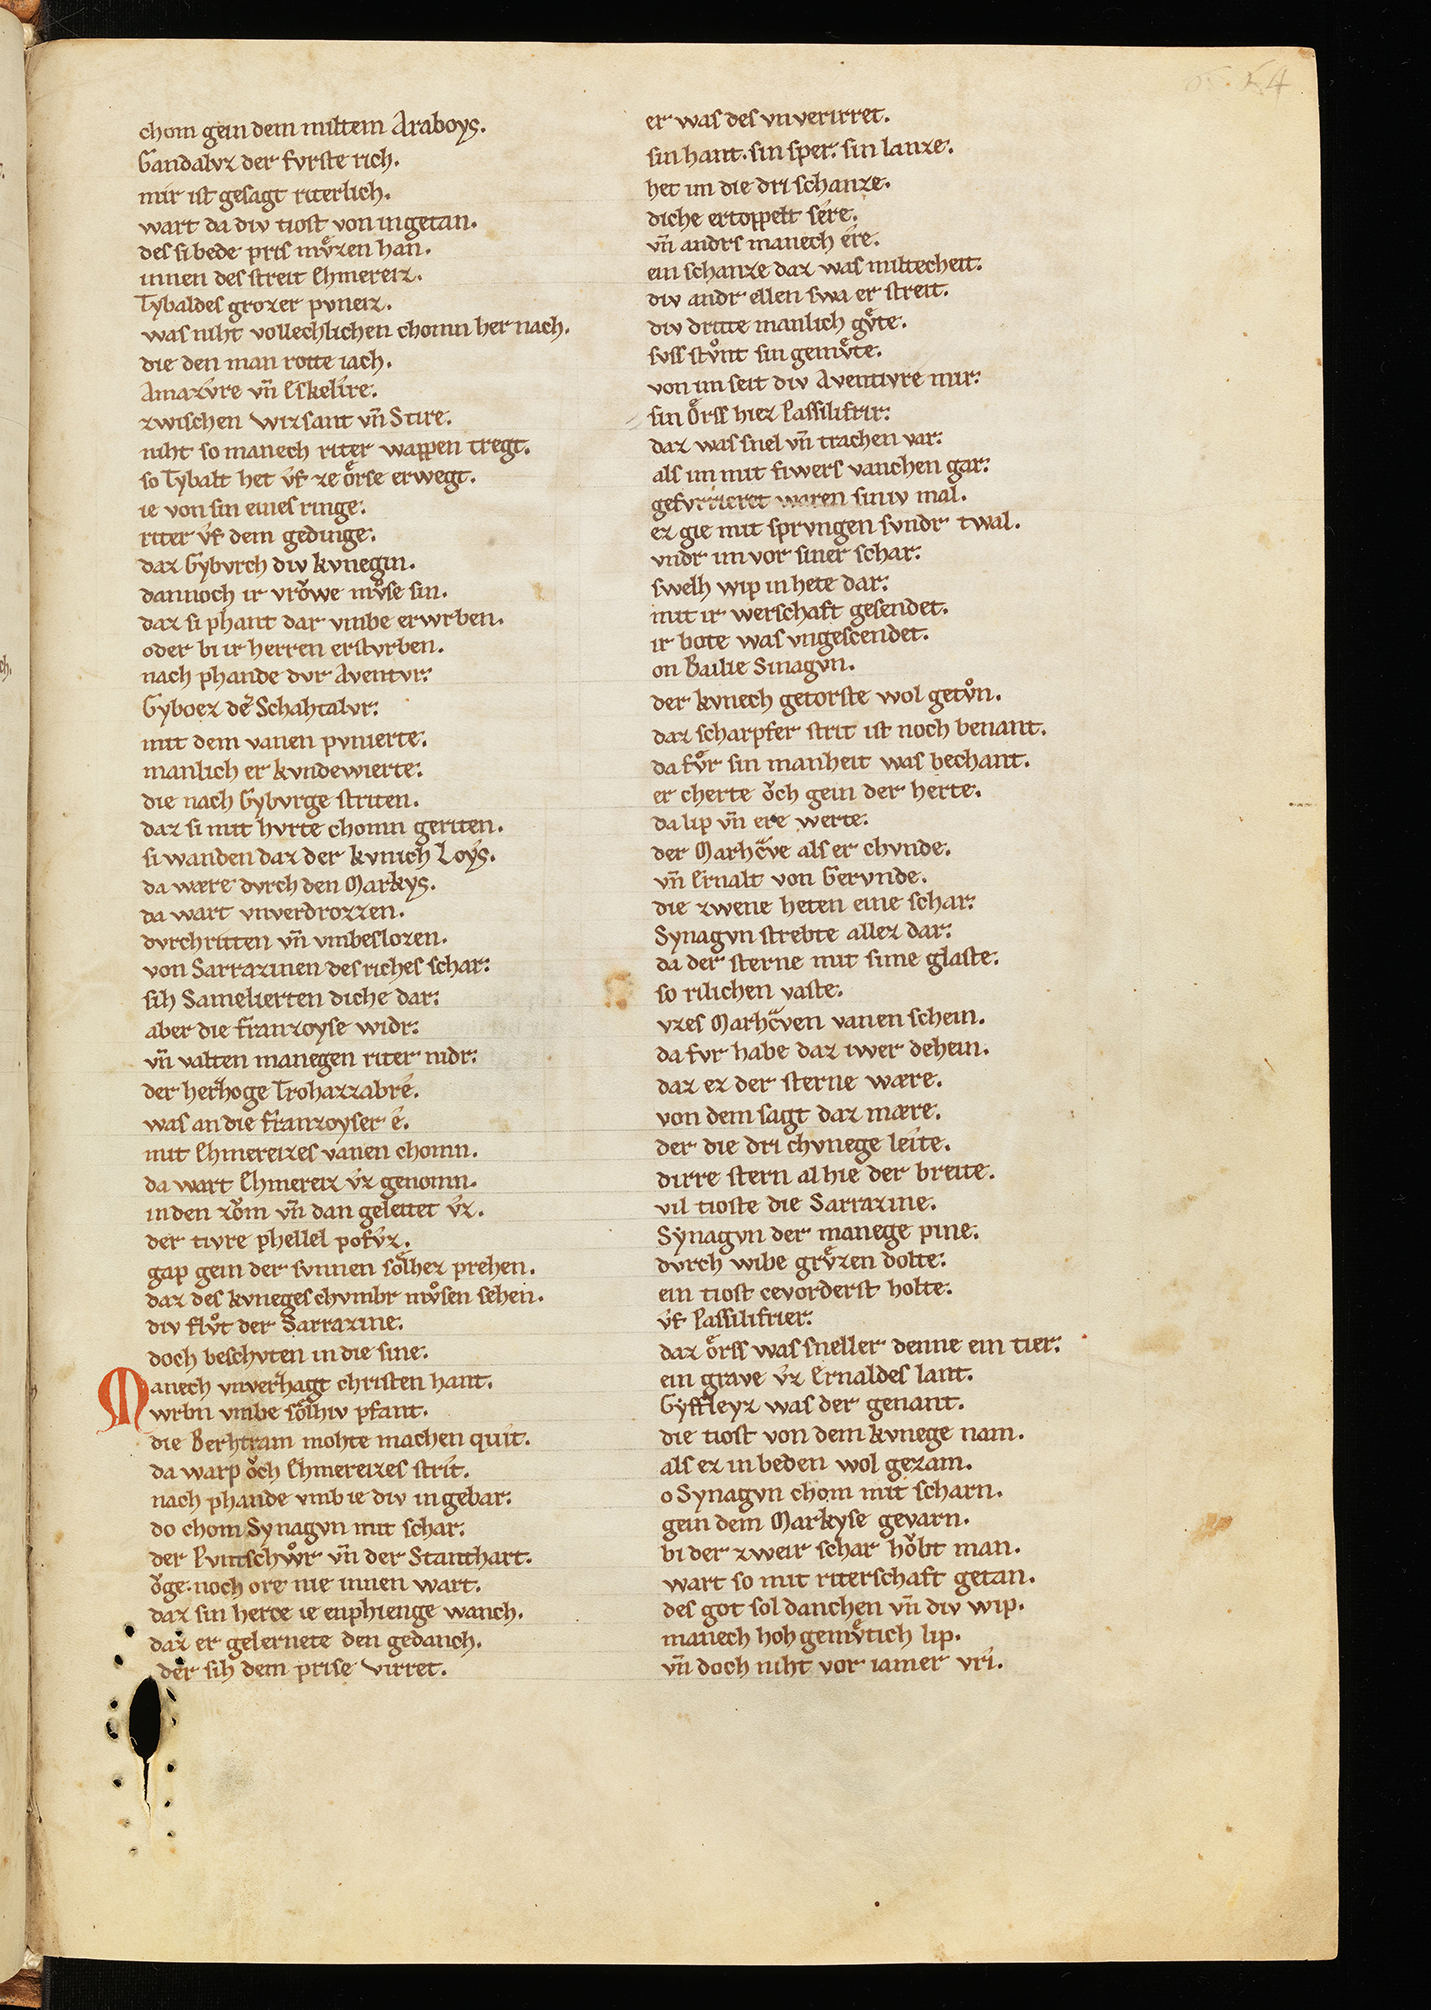 chom gein dem miltem Araboys.
Gandalvz der fvrste rich.
mir ist gesagt riterlich.
wart da div tiost von in getan.
des si bede pris mvͤzen han.
innen des streit Ehmereiz.
Tybaldes grozer pvneiz.
was niht vollechlichen chomn her nach.
die den man rotte iach.
Amazv́re vn̄ Eskelíre.
zwischen wizsant vn̄ Stire.
niht so manech riter wappen tregt.
so Tybalt het v́f ze oͤrse erwegt.
ie von sin eines ringe.
riter v́f dem gedinge.
daz Gybvrch div kvnegin.
dannoch ir vroͮwe mvͦse sin.
daz si phant dar vmbe erwrben.
oder bi ir herren erstvrben.
nach phande dvr Aventvr.
Gyboez der Schahtalvr.
mit dem vanen pvnierte.
manlich er kvndewierte.
die nach Gybvrge striten.
daz si mit hvrte chomn geriten.
si wanden daz der kvnich Loýs.
da wære dvrch den Markys.
da wart vnverdrozzen.
dvrchritten vn̄ vmbeslozen.
von Sarrazinen des riches schar.
sih Samelierten diche dar.
aber die franzoyse widr.
vn̄ valten manegen riter nidr.
der herzhoge Trohazzabré.
was an die franzoyser é.
mit Ehmereizes vanen chomn.
da wart Ehmereiz v́z genomn.
in den zoͮm vn̄ dan geleitet v́z.
der tivre phellel pofv́z.
gap gein der svnnen soͤlhez prehen.
daz des kvneges chvmbr mvͦsen sehen.
div flvͦt der Sarrazine.
doch beschvten in die sine.
Manech vnverzhagt christen hant.
wrbn vmbe soͤlhiv pfant.
die Berhtram mohte machen quit.
da warp oͮch Ehmereizes strít.
nach phande vmb ie div ingebar.
do chom Synagvn mit schar.
der Pvntschvͦr vn̄ der Stanthart.
oͮge. noch ore nie innen wart.
daz sin herce ie enphienge wanch.
daz er gelernete den gedanch.
der sih dem prise virret.
er was des vnverirret.
sin hant. sin sper. sin lanze.
het im die dri schanze.
diche ertoppelt sére.
vn̄ andrs manech ére.
ein schanze daz was miltecheit.
div andr ellen swa er streit.
div dritte manlich gvͤte.
svss stvͦnt sin gemvͤte.
von im seit div Aventivre mir.
sin Oͤrss hiez Passilifrir.
daz was snel vn̄ trachen var.
als im mit fiwers vanchen gar.
gefvrrieret waren siniv mal.
ez gie mit sprvngen svndr twal.
vndr im vor siner schar.
swelh wip in hete dar.
mit ir werschaft gesendet.
ir bote was vngescendet.
on Bailie Sinagvn.
der kvnech getorste wol getvͦn.
daz scharpfer strit ist noch benant.
da fvͦr sin manheit was bechant.
er cherte oͮch gein der herte.
da lip vn̄ ere werte.
der Marhcͣve als er chvnde.
vn̄ Ernalt von Gervnde.
die zwene heten eine schar.
Synagvn strebte allez dar.
da der sterne mit sime glaste.
so rilichen vaste.
vzes Marhcͣven vanen schein.
da fvr habe daz iwer dehein.
daz ez der sterne wære.
von dem sagt daz mære.
der die dri chvnege leíte.
dirre stern al hie der breite.
vil tioste die Sarrazine.
Sẏnagvn der manege pine.
dvrch wibe grvͤzen dolte.
ein tiost cevorderst holte.
v́f Passilifrier.
daz oͤrss was sneller denne ein tier.
ein grave v́z Ernaldes lant.
Gyffleyz was der genant.
die tiost von dem kvnege nam.
als ez in beden wol gezam.
o Synagvn chom mit scharn.
gein dem Markyse gevarn.
bi der zweir schar hoͮbt man.
wart so mit riterschaft getan.
des got sol danchen vn̄ div wip.
manech hoh gemvͤtich lip.
vn̄ doch niht vor iamer vrí.